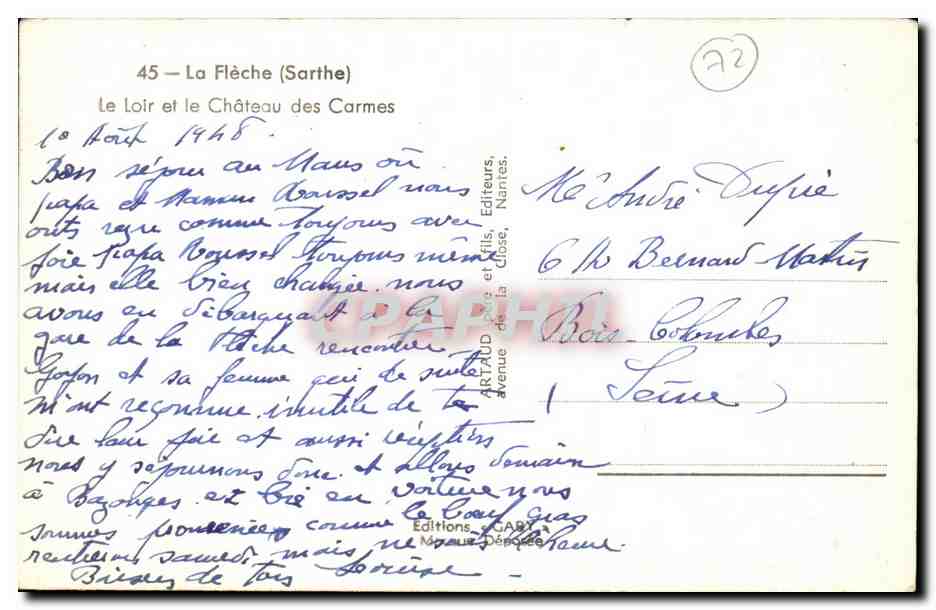 45 — La Flèche (Sarthe)
Le Loir et le Château des Carmes
10 Août 1948.
Bon séjour au Mans où
papa et Maman Roussel nous
ont reçu comme toujours avec
joie papa Roussel toujours même
mais elle bien changée. nous
avons en débarquant à la
gare de la Flèche rencontré
et sa femme qui de suite
m'ont reconnue inutile de te
dire leur joie et aussi réception
nous y séjournons donc. et allons demain
à Bazouges en voiture nous
sommes promenées comme le bœuf gras
rentrerons samedi mais ne sais l'heure.
Bises de tous
ARTAUD père et fils, Editeurs,
avenue de la Close, Nantes.
CPAPHIL
Editions "GABY"
Marque Déposée
72
Me André Dupié
6 Bernard
Bois-Colombes
(Seine)